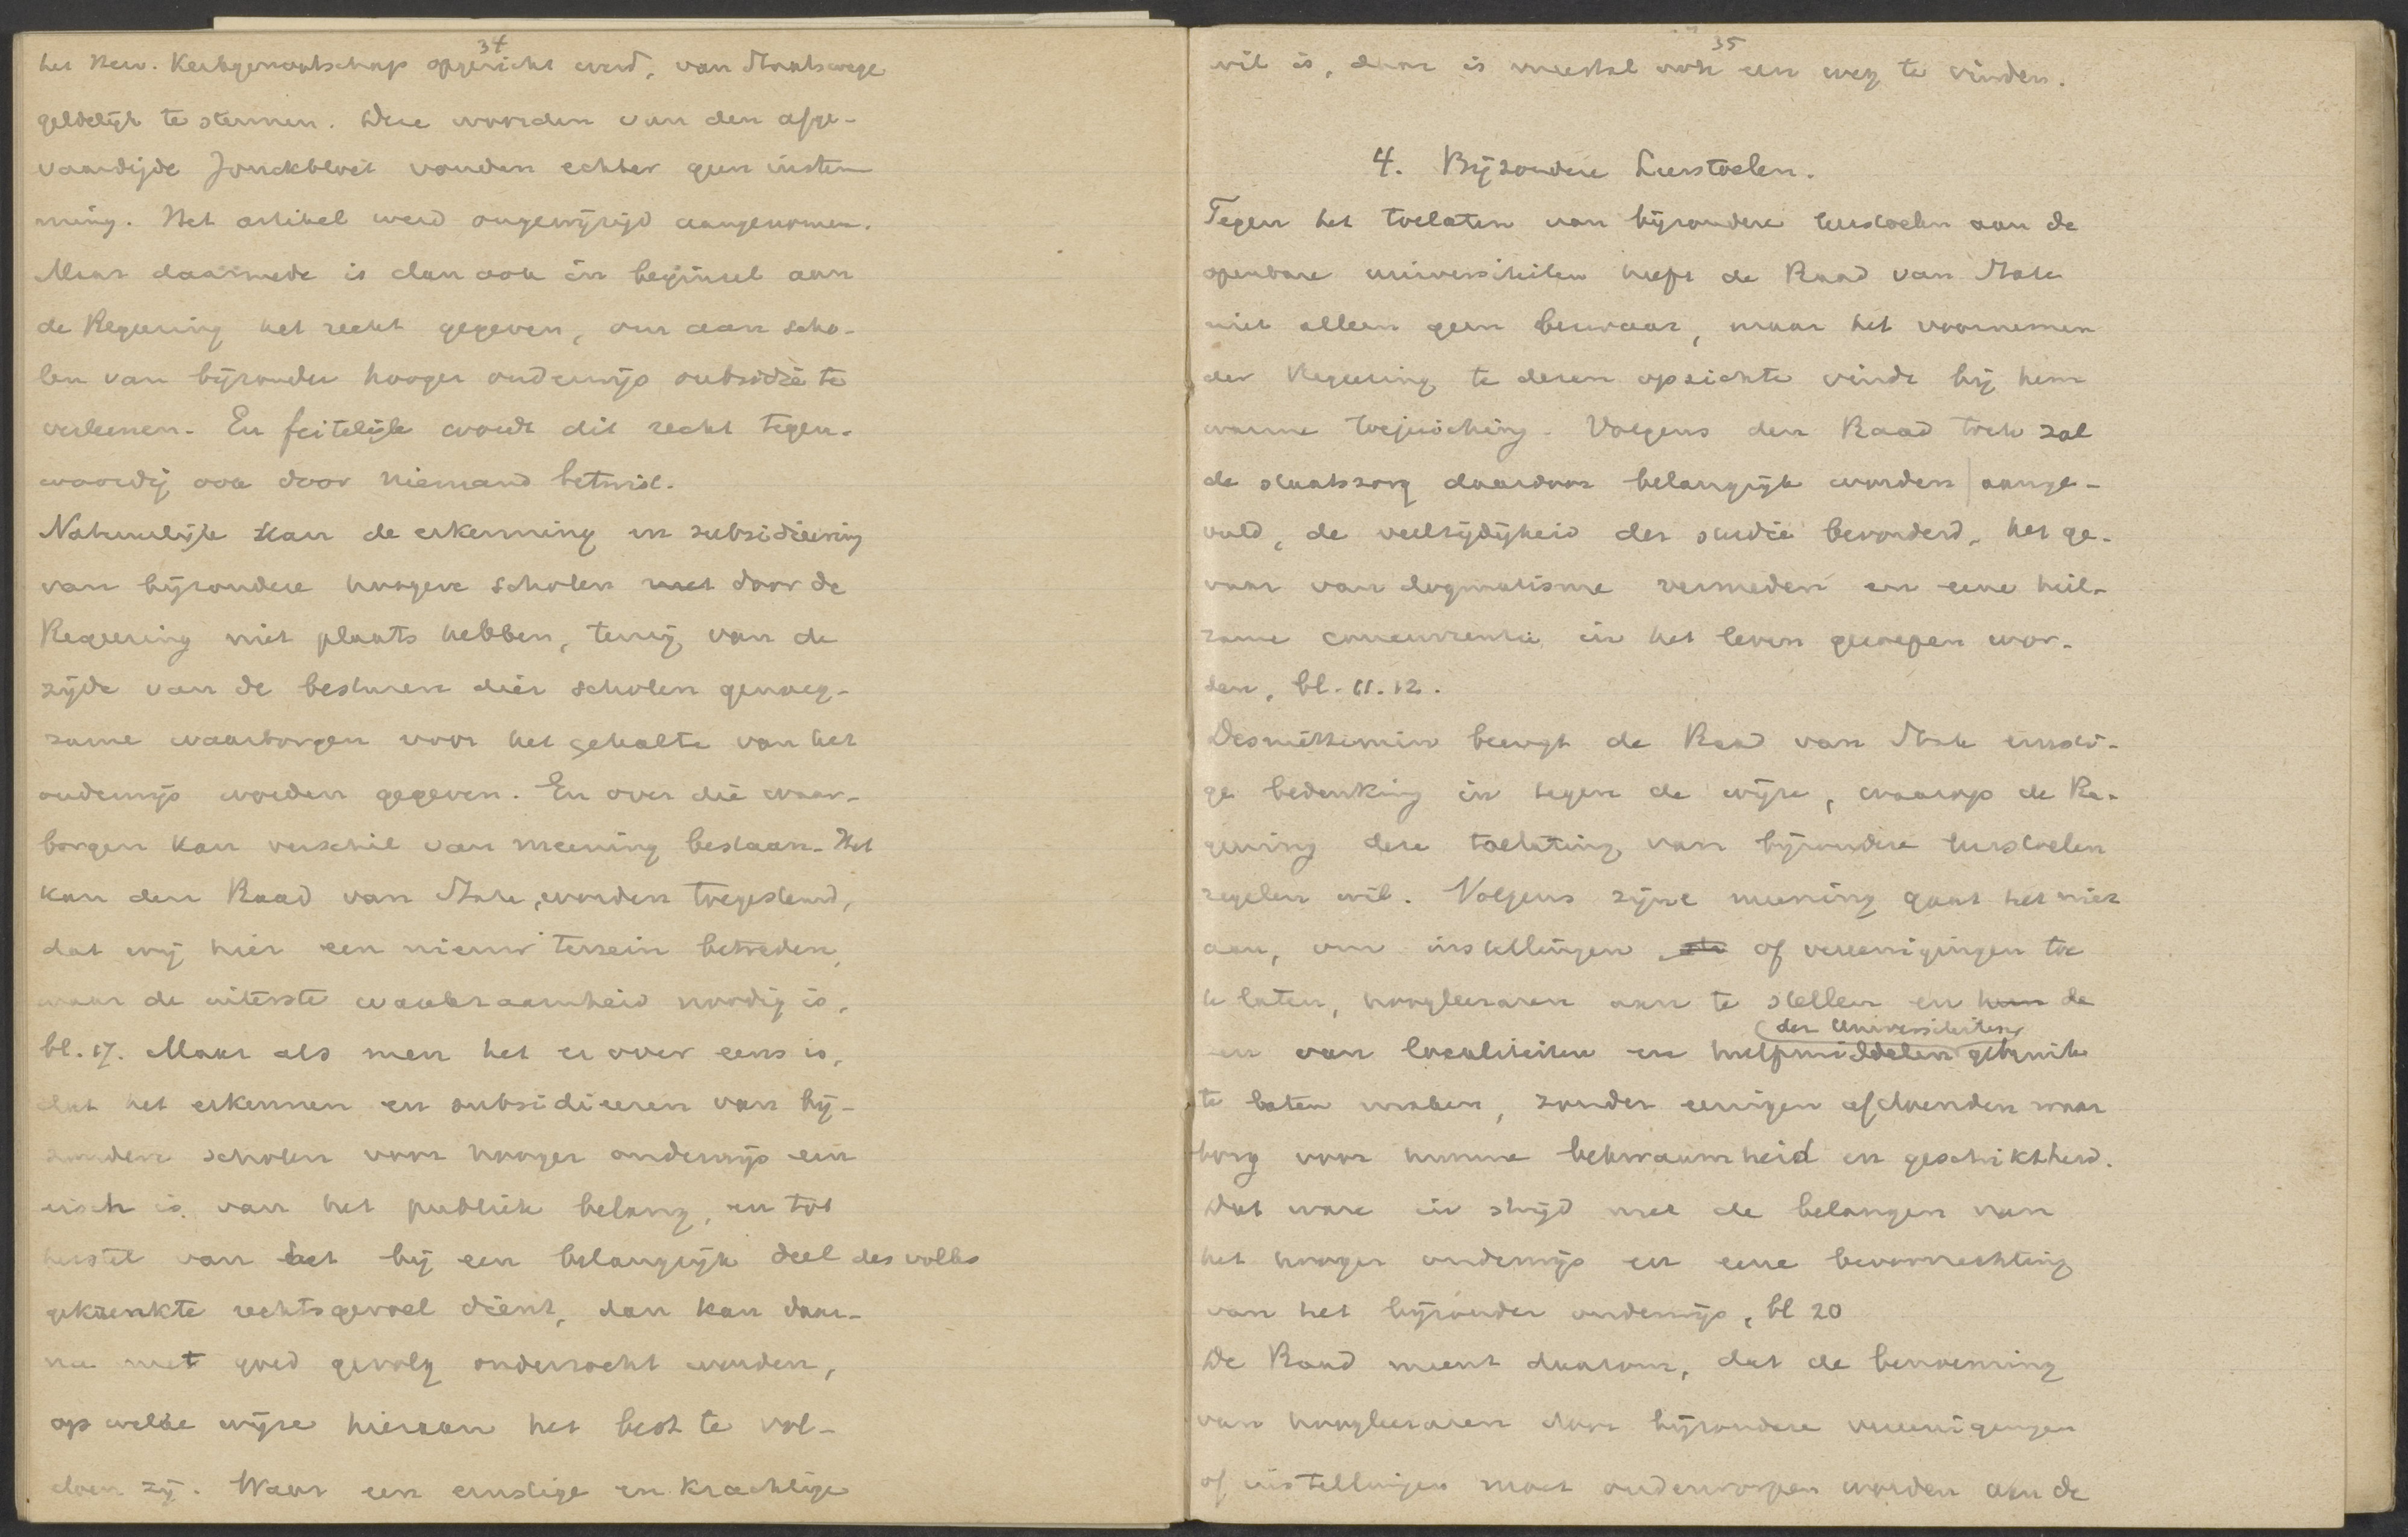 34
het Herv. Kerkgenootschap opgericht werd, van Staatswege
geldelijk te steunen. Deze woorden van den afge-
vaardigde Jonckbloet vonden echter geen instem
ming. Het artikel werd ongewijzigd aangenomen.
Maar daarmede is dan ook in beginsel aan
de Regeering het recht gegeven, om aan scho-
len van bijzonder hooger onderwijs subsidie te
verleenen. En feitelijk wordt dit recht tegen-
woordig ook door niemand betwist.
Natuurlijk kan de erkenning en subsidieering
van bijzondere hoogere scholen met door de
Regeering niet plaats hebben, tenzij van de
zijde van de besturen dier scholen genoeg-
zame waarborgen voor het gehalte van het
onderwijs worden gegeven. En over die waar-
borgen kan verschil van meening bestaan. Het
kan den Raad van State worden toegestemd,
dat wij hier een nieuw terrein betreden,
waar de uiterste waakzaamheid noodig is,
bl. 17. Maar als men het er over eens is,
dat het erkennen en subsidieeren van bij-
zondere scholen voor hooger onderwijs een
eisch is van het publiek belang, en tot
herstel van het bij een belangrijk deel des volks
gekrenkte rechtsgevoel dient, dan kan daar-
na met goed gevolg onderzocht worden,
op welke wijze hieraan het best te vol-
doen zij. Waar een ernstige en krachtige
35
wil is, daar is meestal ook een weg te vinden.
4. Bijzondere Leerstoelen.
Tegen het toelaten van bijzondere leerstoelen aan de
openbare universiteiten heeft de Raad van State
niet alleen geen bezwaar, maar het voornemen
der Regeering te dezen opzichte vindt bij hem
warme toejuiching. Volgens den Raad toch zal
de staatszorg daardoor belangrijk worden aange-
vuld, de veelzijdigheid der studie bevorderd, het ge-
vaar van dogmatisme vermeden en eene heil-
zame concurrentie in het leven geroepen wor-
den, bl. 11. 12.
Desniettemin brengt de Raad van State ernsti-
ge bedenking in tegen de wijze, waarop de Re-
geering deze toelating van bijzondere leerstoelen
regelen wil. Volgens zijne meening gaat het niet
aan, om instellingen of vereenigingen toe
te laten, hoogleeraren aan te stellen en hun de
der Universiteiten
en van localiteiten en hulpmiddelen gebruik
te laten maken, zonder eenigen afdoenden waar
borg voor hunne bekwaamheid en geschiktheid.
Dat ware in strijd met de belangen van
het hooger onderwijs en eene bevoorrechting
van het bijzonder onderwijs, bl 20
De Raad meent daarom, dat de benoeming
van hoogleeraren door bijzondere vereenigingen
of instellingen moet onderworpen worden aan de